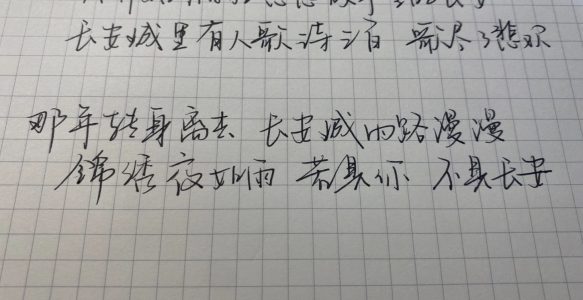 长安城里有人歌诗三百 歌尽了悲欢
那年转身离去 长安城的路漫漫
锦绣夜如雨 若見你 不見长安